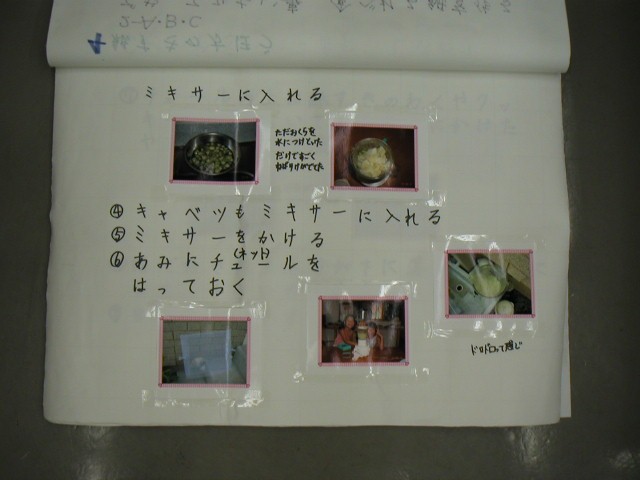 ミキサーに入れる
ただおくらを
水につけていた
だけですごく
ねばりけがでてた
④キャベツもミキサーに入れる
⑤ミキサーをかける
⑥あみにチュールを
(ネット)
はっておく
ドロドロって感じ